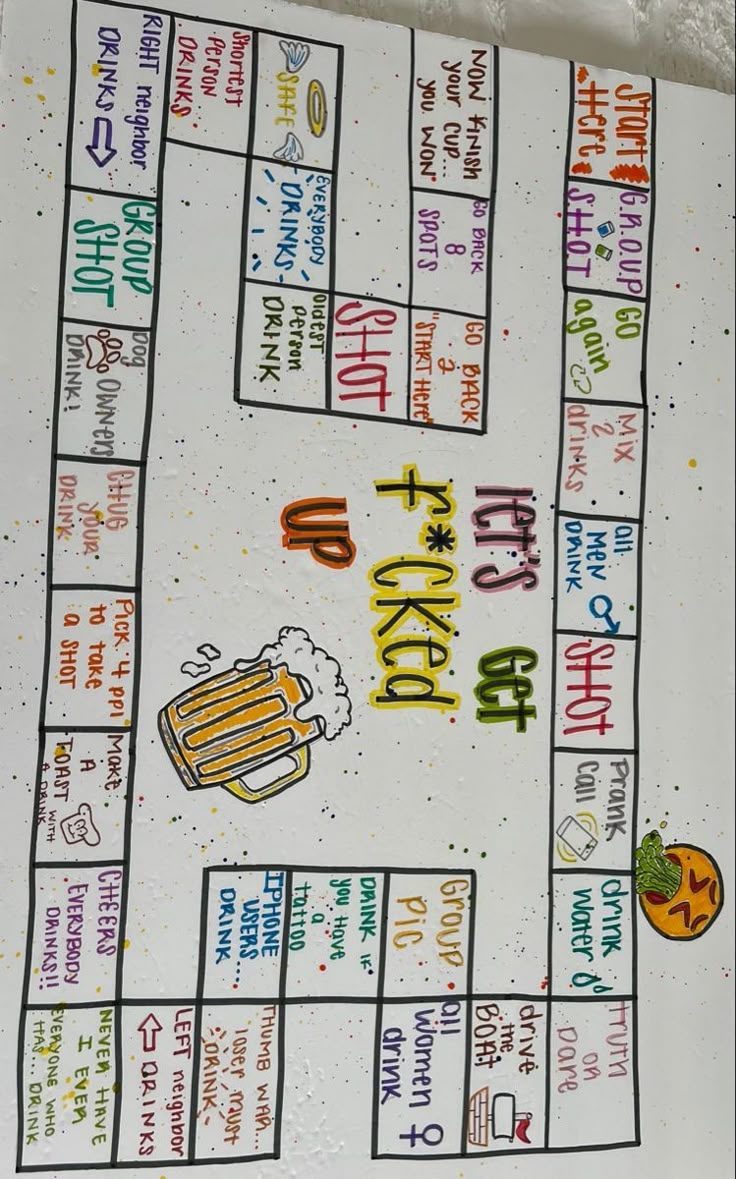 Start
Here
G.R.O.U.P
S.H.O.T
GO
again
Mix
2
drinks
all
MEN
DRINK
SHOT
Prank
Call
drink
Water
truth
or
Dare
drive
the
BOAT
all
Women
drink
Group
Pic
DRINK IF
you HAVE
a
tattoo
IPHONE
USERS...
DRINK
THUMB WAR...
loser must
DRINK
LEFT neighbor
DRINKS
NEVER HAVE
I EVER
EVERYONE WHO
HAS... DRINK
CHEERS
EVERYBODY
DRINKS!!
Make
A
TOAST WITH
A DRINK
PICK 4 ppl
to take
a SHOT
CHUG
YOUR
DRINK
DOG
OWNERS
DRINK!
GROUP
SHOT
RIGHT neighbor
DRINKS
Shortest
Person
DRINKS
SAFE
EVERYBODY
DRINKS
OLDEST
Person
DRINK
SHOT
GO BACK
2
"START HERE"
GO BACK
8
SPOTS
NOW FINISH
your CUP...
you WON
LET'S GET
F*CKED
UP